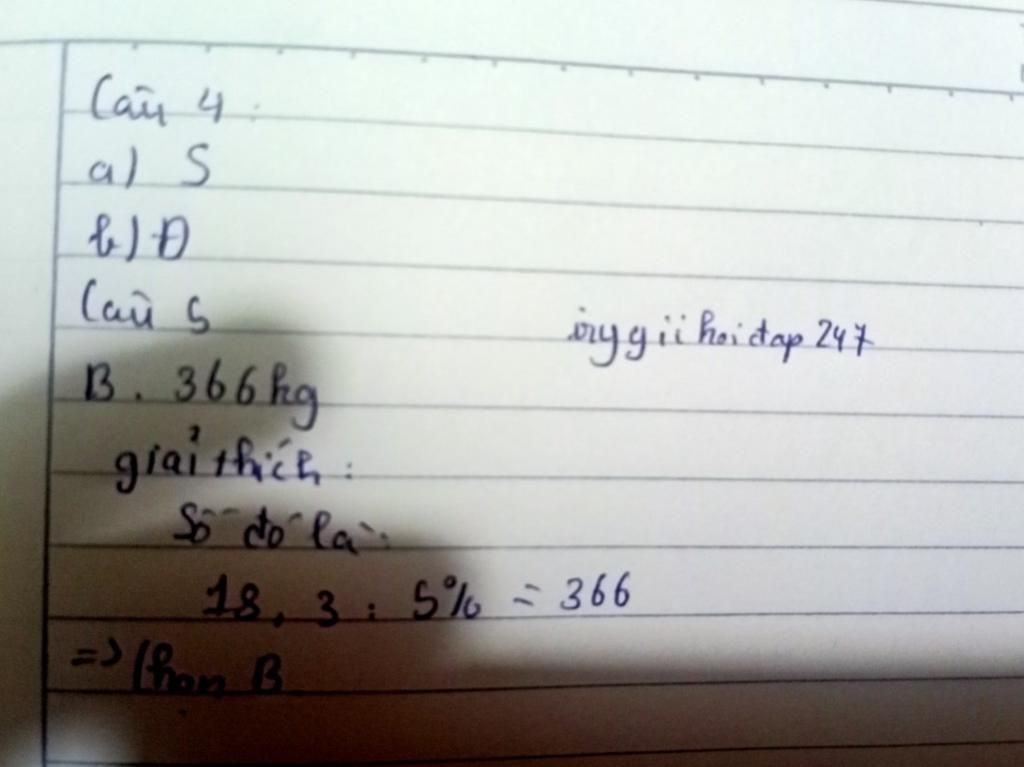 Câu 4:
a) S
b) Đ
Câu 5
hoidap 247
B. 366kg
giải thích:
Số đó là:
18,3 : 5% = 366
=> Chọn B